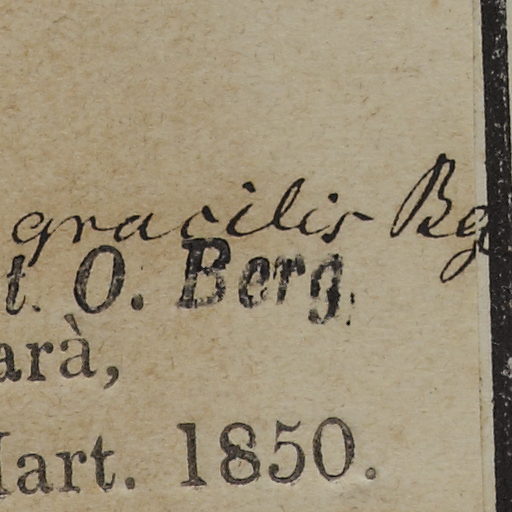 gracilis Bg
t. O. Berg.
arà,
Mart. 1850.